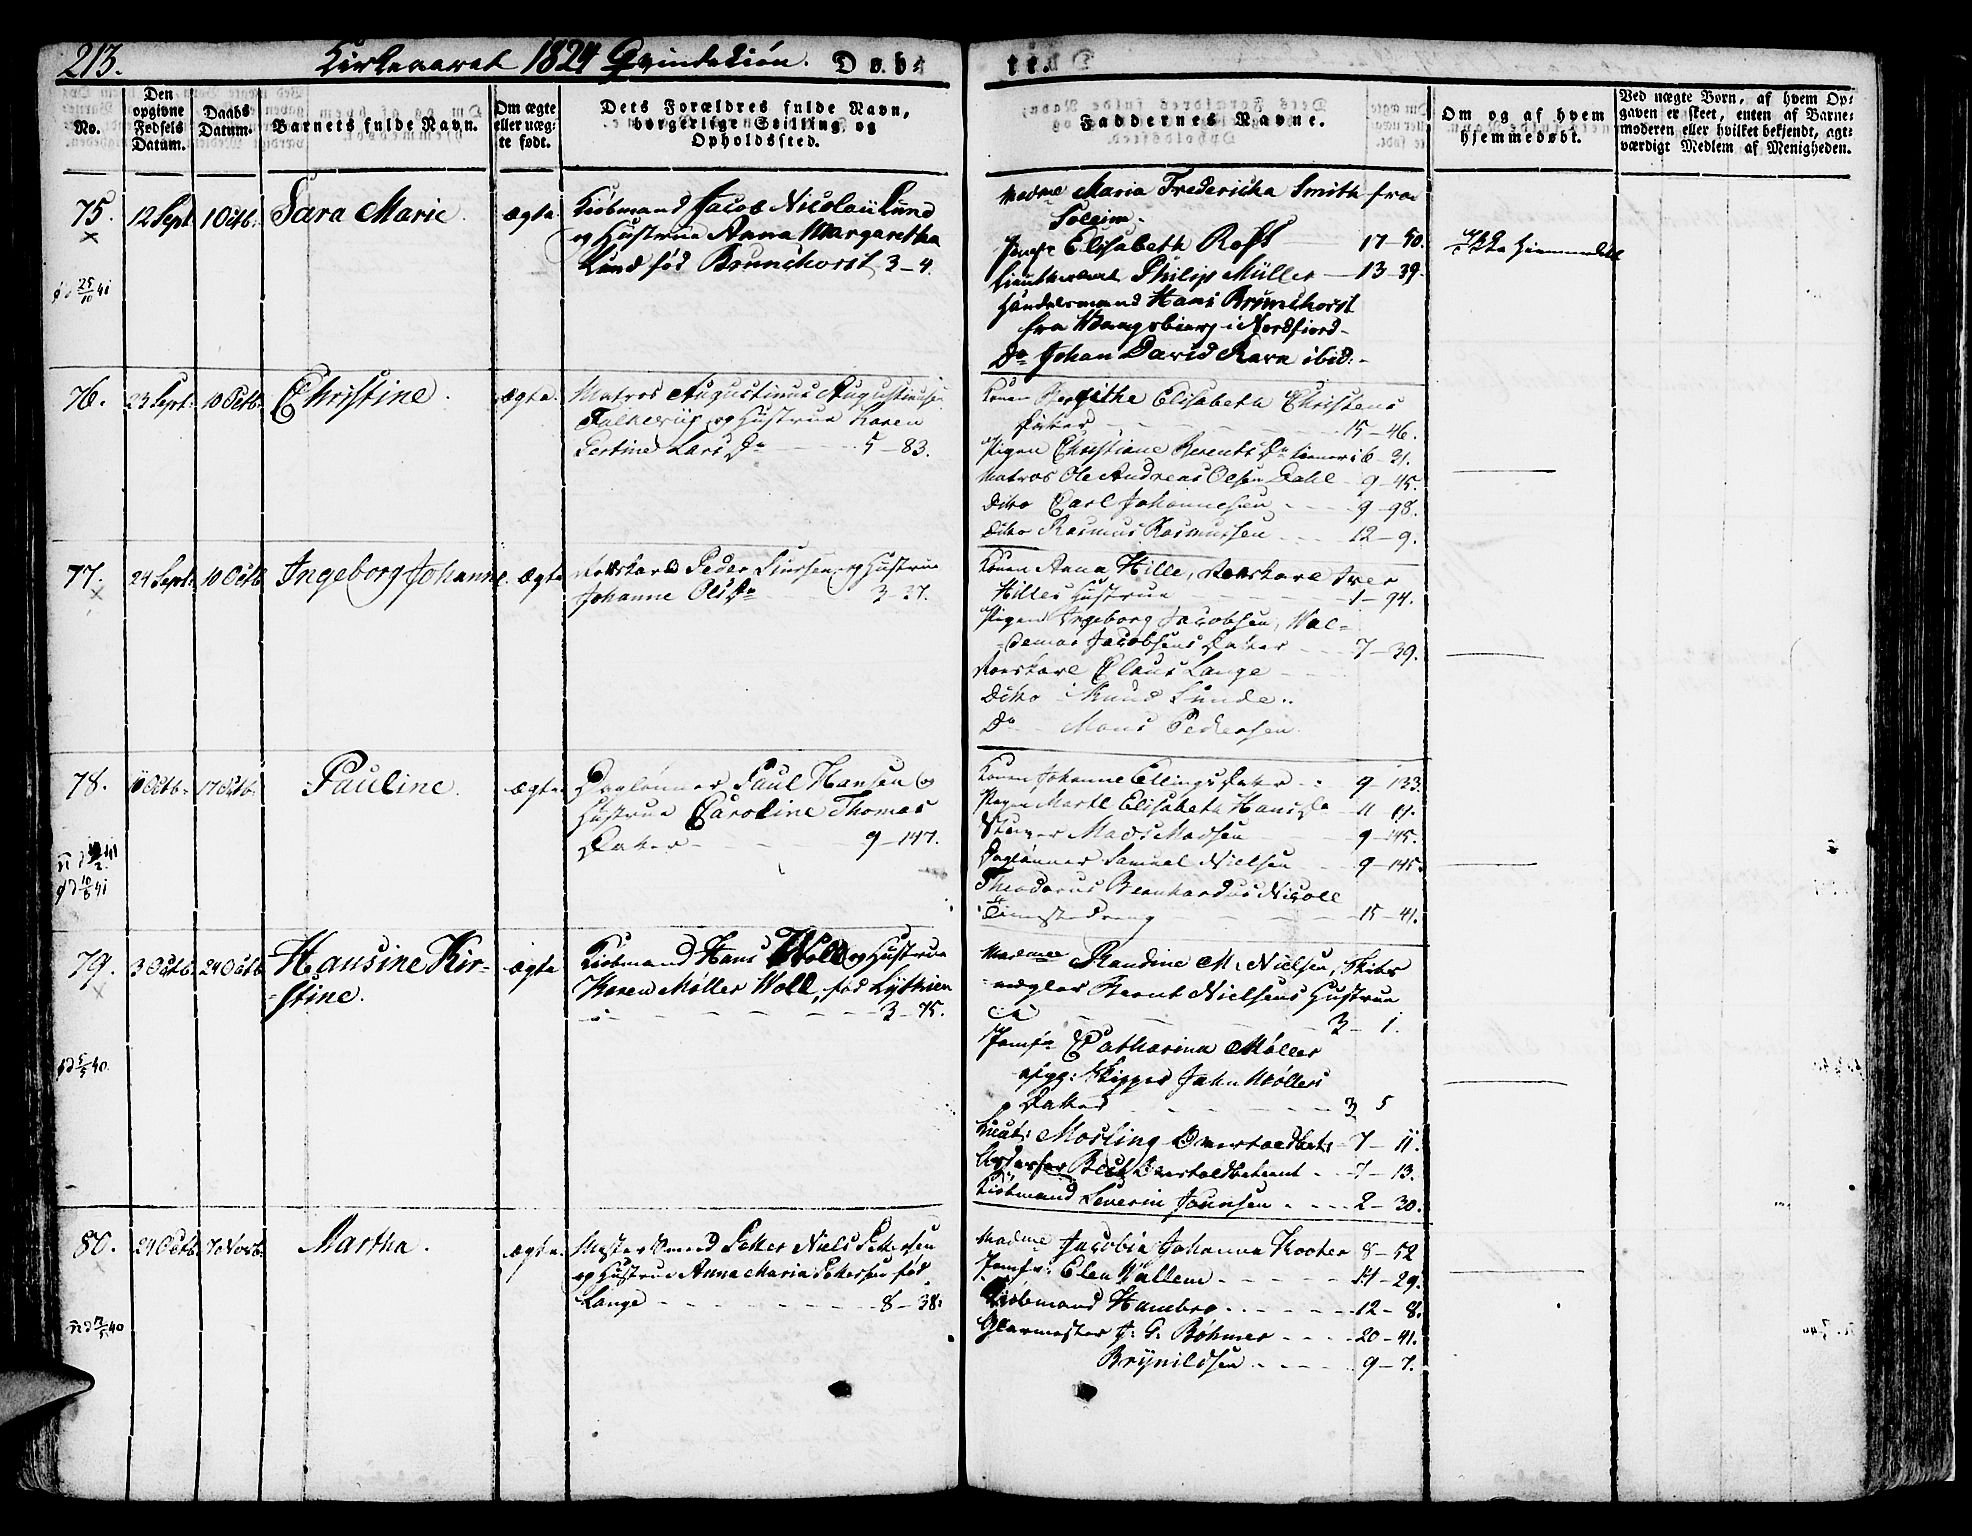 213.
Kirkeaaret 1824 Qvindekiön. Døbte.
No.
Den opgivne Fødsels Datum.
Daabs Datum.
Barnets fulde Navn.
Om ægte eller uægte født.
Dets Forældres fulde Navn, borgerlige Stilling, og Opholdssted.
Faddernes Navne.
Om og af hvem hjemmedøbt.
Ved uægte Børn, af hvem Opgaven er skeet, enten af Barnemoderen eller hvilket bekjendt, agtværdigt Medlem af Menigheden.
75. 12 Sept 1 Octb. Sara Marie. ægte
Kiöbmand Jacob Nicolai Lund
og Hustrue Anna Margaretha
Lund föd Brunchorst 3-4.
Madme Maria Fredericka Smith fra
Solheim.
Jomfr Elisabeth Rofs 17-50.
Lieutenant Philip Müller 13-39.
Handelsmand Hans Brunchorst
fra Vaagsbierg i Nordfiord
Do Johan David Ravn ibid:
Ikke hiemmedöbt
25/10 41
76. 23 Sept. 10 Octb. Christine. ægte
Matros Augustinus Augustinusen
og Hustrue Karen
Gertine Lars Dr 5-83.
Konen Berithe Elisabeth Christens
Datter 15-46.
Pigen Christiane Berents Dr 6-21.
Matros Ole Andreas Olsen Dahl 9-45.
Ditto Carl Johannesen 9-98.
Ditto Rasmus Rasmussen 12-9.
77. 24 Sept. 10 Octb Ingeborg Johanne. ægte
Peder Siursen og Hustrue
Johanne Ols Dr 3-27.
Konen Anna Hille, Iver
Hilles Hustrue 1-94.
Pigen Ingeborg Jacobsen, Wal-
demar Jacobsens Datter 7-39.
Claus Lange
Ditto Knud Lunde
Do Mons Pedersen
78. Octb. 17 Octb. Pauline. ægte
Daglönner Paul Hansen og
Hustrue Caroline Thomas
Datter 9-147.
Konen Johanne Ellings Datter 9-133.
Pigen Elisabeth Hans Dr
Mads Madsen 9-145.
Daglönner Samuel Nielsen 9-145.
Theodorus Bernhardus Nicoll
Tienestedreng 15-41.
79. 3 Octb. 24 Octb Hansine Kir-
stine. ægte
Kiöbmand Hans Woll og Hustrue
Karen Møller Woll, föd Lÿthien
3-75.
Madme Randine M. Nielsen, Skibs
mægler Bernt Nielsens Hustrue
3-1.
Jomfr Catharina Møller
afgg: Skipper Jahn Møllers
Datter 3 5
Lieut: Mosling Overtoldbetj 7-11.
Overtoldbetient 7-13.
Kiöbmand Severin Jounsen 2-30.
5/5 40
80. 24 Octb. 7 Novb. Martha. ægte
Niels Petersen
og Hustrue Anna Maria Petersen föd
Lange 8-38.
Madme Jacobia Johanna Kooter 8-52
Jomfr: Elen Wallem 11-29.
Kiöbmand Hambro 12-8.
Glarmester J. G. Böhmer 20-41.
Brÿnildsen 9-7.